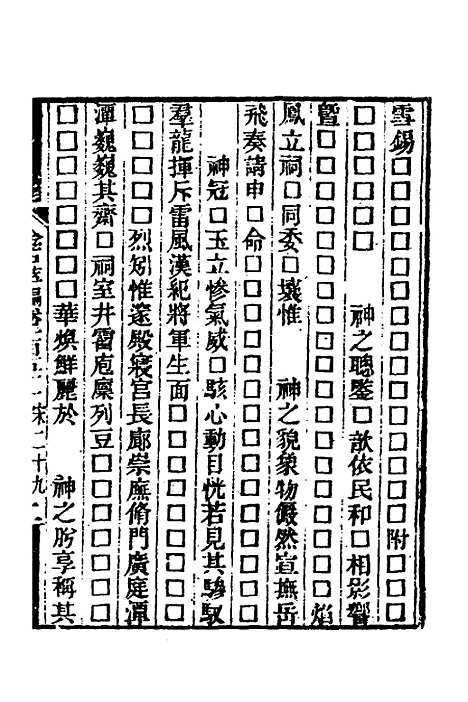 雪錫□□□□□□□□□□□□□□□附□□□
□□□□□□　神之聰鑒□歆依民和□相影響
暨□□□□□□□□□□□□□□□□□□□焰
鳳立祠□同委□壤惟　神之貌象物儼然宣撫岳
飛奏請申□命□□□□□□□□□□□□□□□
神冠□玉立慘氣威□駭心動目恍若見其驂馭
羣龍揮斥雷風漢紀將軍生面□□□□□□□□□
□□□□□烈矧惟邃殿寢宮長廊崇廡脩門廣庭潭
潭巍巍其齋□祠室井霤庖廩列豆□□□□□□□
□□□□□□□□華煥鮮麗於　神之肸享稱其
金石萃編卷一百四十一 宋二十九